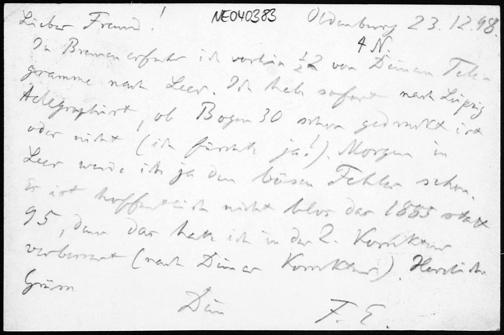 Lieber Freund!
NE040383
Oldenburg 23.12.98.
4 N.
In Bremen erfuhr ich vorhin ½2 von Deinem Tele-
gramme nach Leer. Ich habe sofort nach Leipzig
telegraphirt, ob Bogen 30 schon gedruckt ist
oder nicht (ich fürchte ja!). Morgen in
Leer werde ich ja den bösen Fehler sehen.
Er ist hoffentlich nicht blos das 1885 statt
95, denn das hatte ich in der 2. Korrektur
verbessert (nach Deiner Korrektur). Herzliche
Grüsse
Dein F. E.